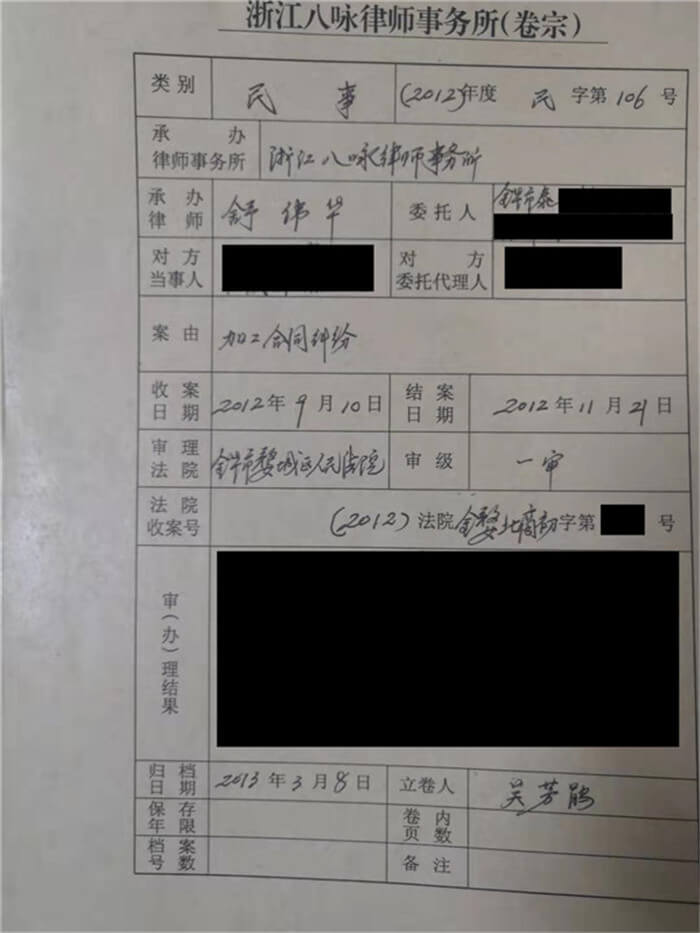 浙江八咏律师事务所(卷宗)
类别 民事 (2012)年度 民 字第 106 号
承办律师事务所 浙江八咏律师事务所
承办律师 舒伟华 委托人 金华市
对方当事人 对方委托代理人
案由 加工合同纠纷
收案日期 2012年9月10日 结案日期 2012年11月21日
审理法院 金华市婺城区人民法院 审级 一审
法院收案号 (2012)法院金婺北商初字第 号
审(办)理结果
归档日期 2013年3月8日 立卷人 吴芳
保存年限 卷内页数
档案号数 备注